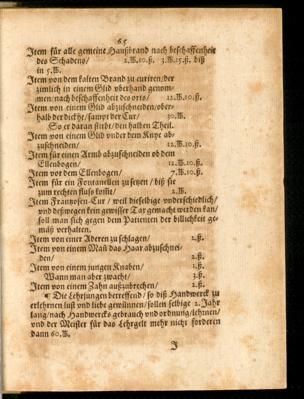 65
Item für alle gemeine Haußbrand nach beschaffenheit
des Schadens/ 2.℔.10.ß. 3.℔.15.ß. biß
in 5.℔.
Item von dem kalten Brand zu curiren/der
zimlich in einem Glid vberhand genom-
men/nach beschaffenheit des orts/ 12.℔.10.ß.
Item von einem Glid abzuschneiden/ober-
halb der dicke/sampt der Cur/ 30.℔.
So er daran stirbt/den halben Theil.
Item von einem Glid vnder dem Knye ab-
zuschneiden/ 12.℔.10.ß.
Item für einen Armb abzuschneiden ob dem
Ellenbogen/ 12.℔.10.ß.
Item vor dem Ellenbogen/ 7.℔.10.ß.
Item für ein Fontanellen zu setzen/ biß sie
zum rechten fluß komt/ 2.℔.
Item Frantzosen-Cur/ weil dieselbige vnderschiedlich/
vnd deßwegen kein gewisser Tax gemacht werden kan/
soll man sich gegen dem Patienten der billichkeit ge-
mäß verhalten.
Item von einer Aderen zu schlagen/ 2.ß.
Item von einem Mañ das Haar abzuschnei-
den/ 2.ß.
Item von einem jungen Knaben/ 1.ß.
Wann man aber zwacht/ 3.ß.
Item von einem Zahn außzubrechen/ 2.ß.
¶ Die Lehrjungen betreffend/ so diß Handwerck zu
erlehrnen lust vnd liebe gewinnen/ sollen selbige 2. Jahr
lang/nach Handwercks gebrauch vnd ordnung/lehrnen/
vnd der Meister für das Lehrgelt mehr nicht forderen
dann 60.℔.
J